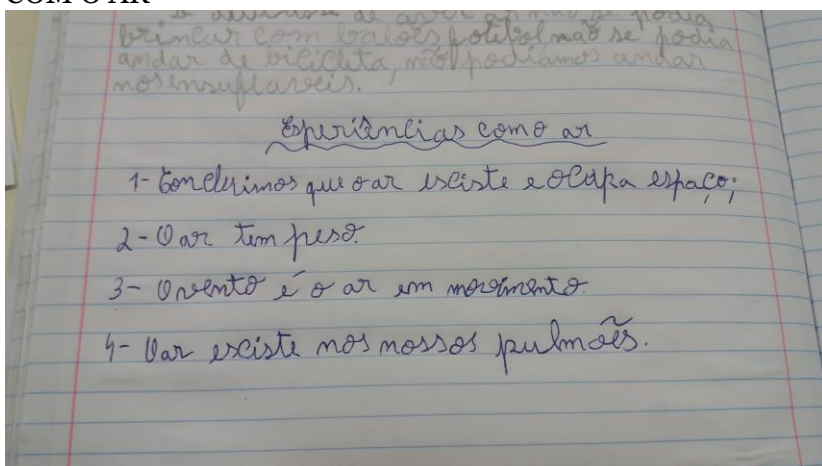 COM O AR
e diversão de andar e não se podia
brincar com balões, futebol não se podia
andar de bicicleta, não podíamos andar
nos insufláveis.
Experiências com o ar
1- Concluimos que o ar esciste e ocupa espaço;
2- O ar tem peso.
3- O vento é o ar em movimento.
4- O ar esciste nos nossos pulmões.